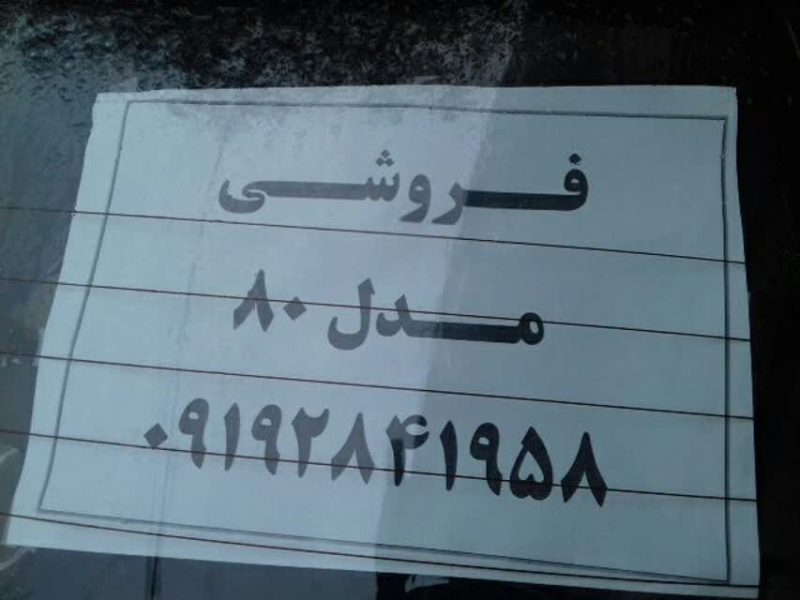 فروشی
مدل ۸۰
۰۹۱۹۲۸۴۱۹۵۸